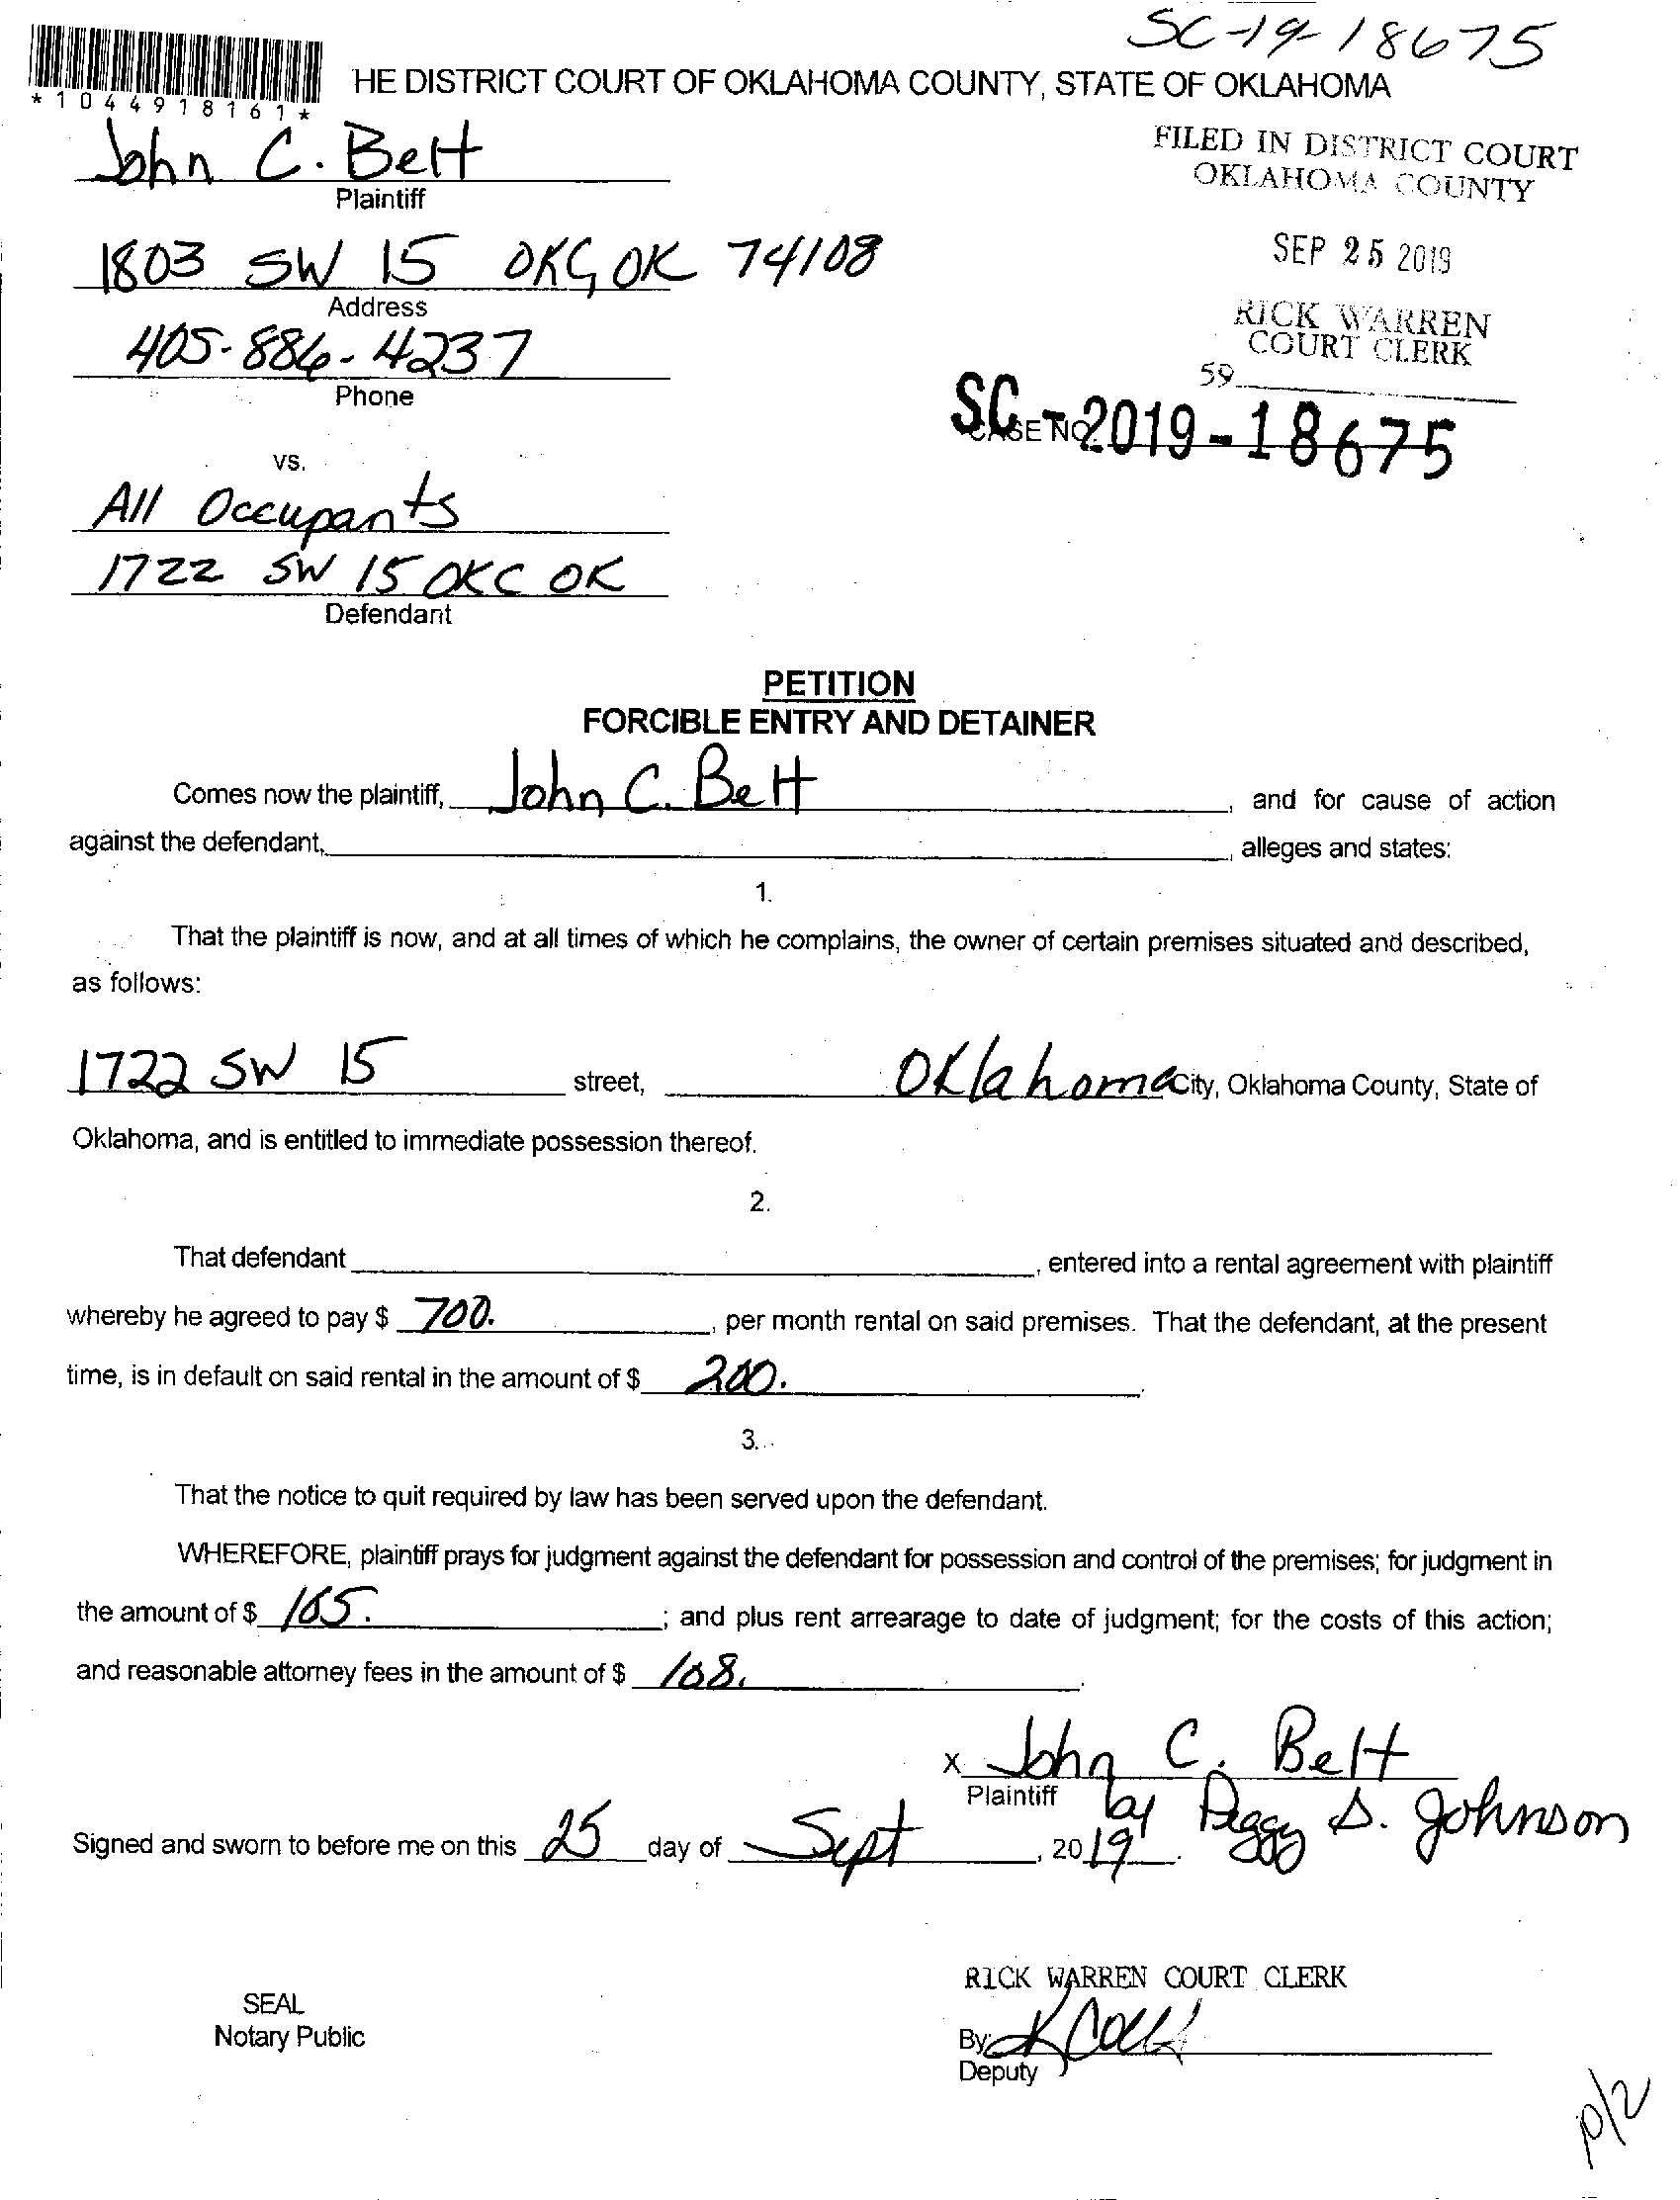 SC-19-18675
*1044918161*
HE DISTRICT COURT OF OKLAHOMA COUNTY, STATE OF OKLAHOMA
John C. Belt
Plaintiff
FILED IN DISTRICT COURT
OKLAHOMA COUNTY
1803 SW 15 OKC, OK 74108
Address
SEP 25 2019
405-886-4237
Phone
RICK WARREN
COURT CLERK
59
SC-2019-18675
CASE NO.
vs.
All Occupants
1722 SW 15 OKC OK
Defendant
PETITION
FORCIBLE ENTRY AND DETAINER
Comes now the plaintiff, John C. Belt, and for cause of action
against the defendant, , alleges and states:
1.
That the plaintiff is now, and at all times of which he complains, the owner of certain premises situated and described,
as follows:
1722 SW 15 street, Oklahoma City, Oklahoma County, State of
Oklahoma, and is entitled to immediate possession thereof.
2.
That defendant , entered into a rental agreement with plaintiff
whereby he agreed to pay $ 700. , per month rental on said premises. That the defendant, at the present
time, is in default on said rental in the amount of $ 200. .
3.
That the notice to quit required by law has been served upon the defendant.
WHEREFORE, plaintiff prays for judgment against the defendant for possession and control of the premises; for judgment in
the amount of $ 165. ; and plus rent arrearage to date of judgment; for the costs of this action;
and reasonable attorney fees in the amount of $ 108. .
X John C. Belt
Plaintiff by Peggy S. Johnson
Signed and sworn to before me on this 25 day of Sept , 2019 .
RICK WARREN COURT CLERK
SEAL
Notary Public
By:
Deputy
10/2